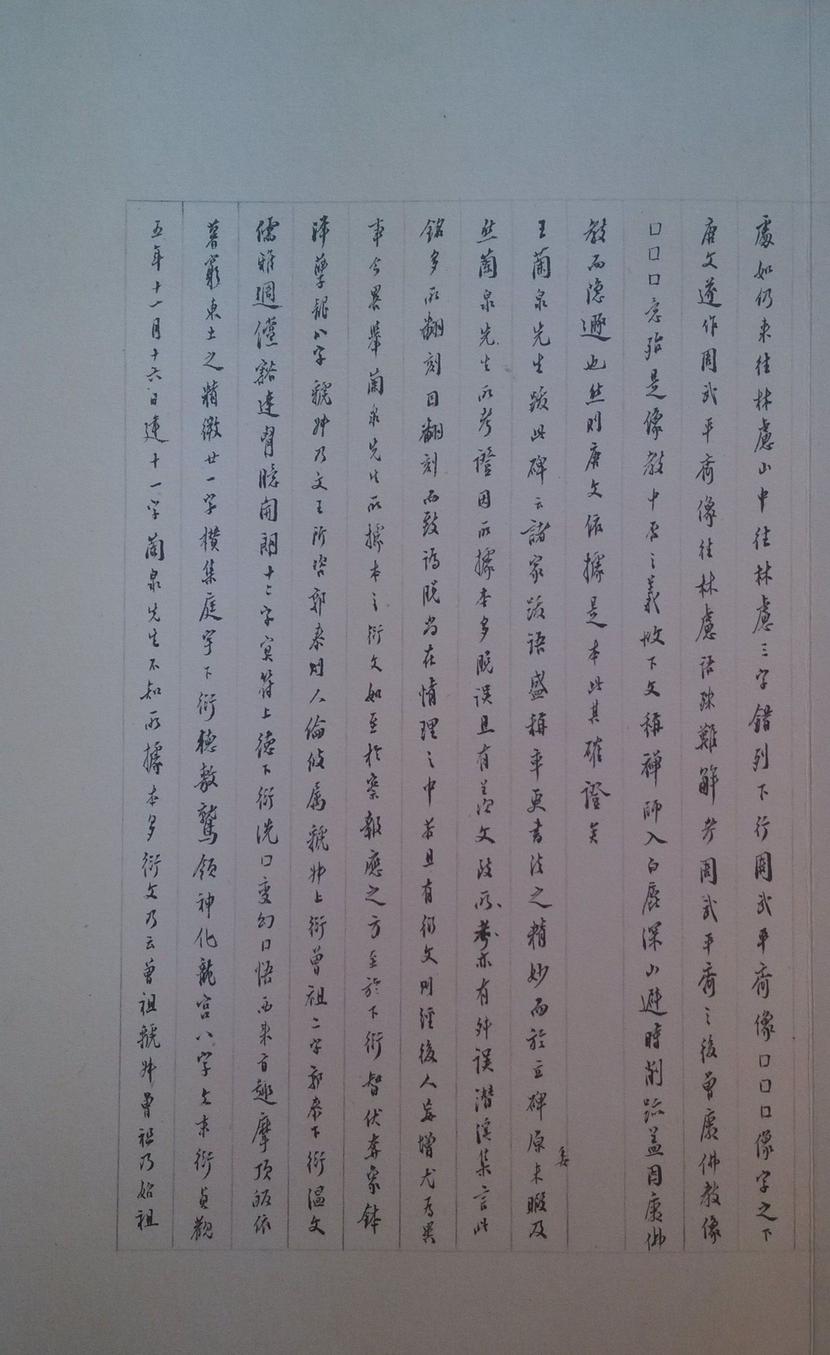 處如仍來往林慮山中往林慮三字錯列下行周武平齊像口口口像字之下
唐文遂作周武平齊像往林慮語殊難解考周武平齊之後曾廢佛教像
口口口意殆是像教中否之義故下文稱禪師入白鹿深山避時削跡蓋因廢佛
教而隱遯也然則唐文依據是本此其確證矣
王蘭泉先生跋此碑云諸家跋語盛稱率更書法之精妙而於立碑原委未暇及
然蘭泉先生所考證因所據本多脫誤且有羨衍文故所考亦有舛誤潛溪集言此
銘多所翻刻因翻刻而致譌脫尚在情理之中若且有衍文則經後人妄增尤為異
事今畧舉蘭泉先生所據本之衍文如至於察報應之方至於下衍智伏奔象鉢
降孽龍八字虢叔乃文王所咨郭泰則人倫攸屬虢叔上衍曾祖二字郭泰下衍溫文
儒雅週儻豁達胷臆開朗十二字冥符上德下衍洗口變幻口悟西來旨趣摩頂皈依
著窮東土之精微廿一字橫集庭宇下衍穗敷鷲領神化龍宮八字文末衍貞觀
五年十一月十六日建十一字蘭泉先生不知所據本多衍文乃云曾祖虢叔曾祖乃始祖